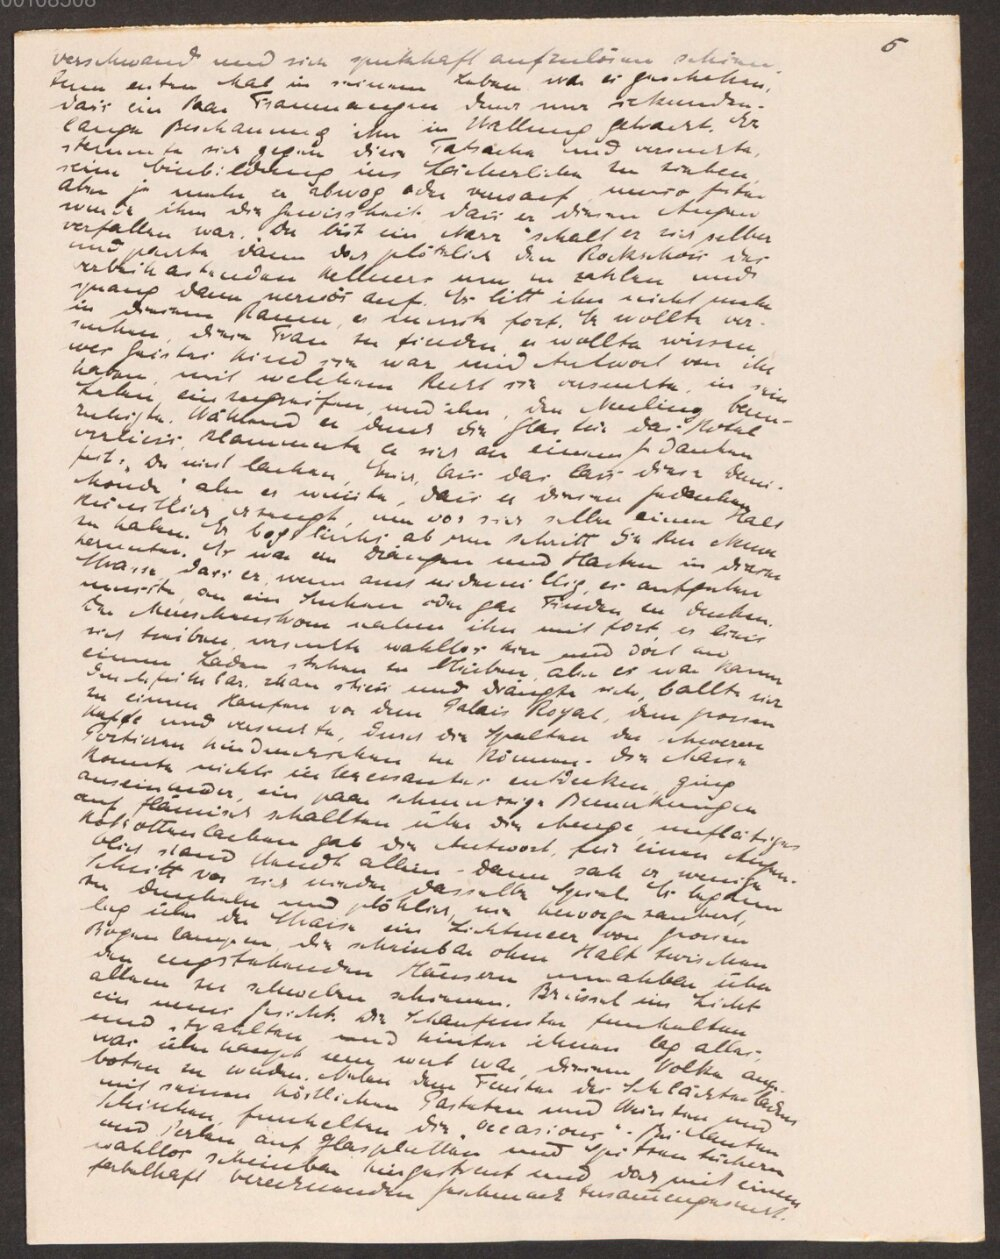 00108508
5
verschwand und sich spukhaft aufzulösen schien.
Zum ersten Mal in seinem Leben war es geschehen,
dass ein Paar Frauenaugen durch nur sekunden-
lange Beschauung ihn in Wallung gebracht. Er
stemmte sich gegen diese Tatsache und versuchte,
seine Einbildung ins Lächerliche zu ziehen,
aber je mehr er abwog oder verwarf, umso fester
wurde ihm die Gewissheit, dass er diesen Augen
verfallen war. „Du bist ein Narr" schalt er sich selber
und packte dann doch plötzlich den Rockschoss des
vorbeihastenden Kellners um zu zahlen und
sprang dann nervös auf. Es litt ihn nicht mehr
in diesem Raum, er musste fort. Er wollte ver-
suchen, diese Frau zu finden, er wollte wissen
wes Geistes Kind sie war und Antwort von ihr
haben, mit welchem Recht sie versuchte, in sein
Leben einzugreifen, und ihn, den Neuling beun-
ruhigte. Während er durch die Glastür das Hotel
verliess, klammerte er sich an einen Gedanken
fest: „Du wirst lachen, lass das lass diese
aber er wusste, dass er diesen Gedanken
künstlich erzeugt, um vor sich selbst einen Halt
zu haben. Er bog links ab und schritt die Rue Neuve
herunter. Es war ein Drängen und Hasten in dieser
Strasse, dass er, wenn auch widerwillig, es aufgeben
musste, an ein Suchen oder gar Finden zu denken.
Der Menschenstrom nahm ihn mit fort, er liess
sich treiben, versuchte wahllos hier und dort an
einem Laden stehen zu bleiben, aber es war kaum
durchführbar. Man stiess und drängte sich, ballte sich
zu einem Haufen vor dem Palais Royal, dem grossen
Kaffe und versuchte, durch die Spalten der schweren
Portieren hindurchsehen zu können. Die Masse
konnte nichts interessantes entdecken, ging
auseinander, ein paar schmutzige Bemerkungen
auf flämisch schallten über die Menge, unflätiges
Kokottenlachen gab die Antwort, für einen Augen-
blick stand allein - dann sah er wenige
Schritt vor sich wieder dasselbe Spiel. Es begann
zu dunkeln und plötzlich, wie hervorgezaubert,
lag über der Strasse ein Lichtmeer von grossen
Bogenlampen, die scheinbar ohne Halt zwischen
den engstehenden Häusern unnahbar über
allem zu schweben schienen. Brüssel im Licht
ein neues Gesicht. Die Schaufenster funkelten
und strahlten und hinter ihnen lag alles,
was überhaupt nur wert war, diesem Volke ange-
boten zu werden. Neben dem Fenster des Schlächterladens
mit seinen köstlichen Pasteten und Würsten und
Schinken, funkelten die „occasions" - Brillanten
und Perlen auf Glasplatten und Spitzentüchern
wahllos scheinbar hingestreut und doch mit einem
fabelhaft berechnenden Geschmack zusammengesucht.